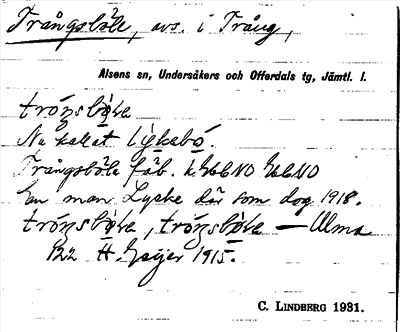 Trångsböle, avs. i Trång,
Alsens sn, Undersåkers och Offerdals tg, Jämtl. l.
tróŋsbø̀le
Nu kallat lýkabó.
Trångsböle fäb.
En man Lycke där som dog 1918.
tróŋsbø̀le, tróŋsbø̀le — Ulma
H. Geijer 1915.
C. LINDBERG 1931.